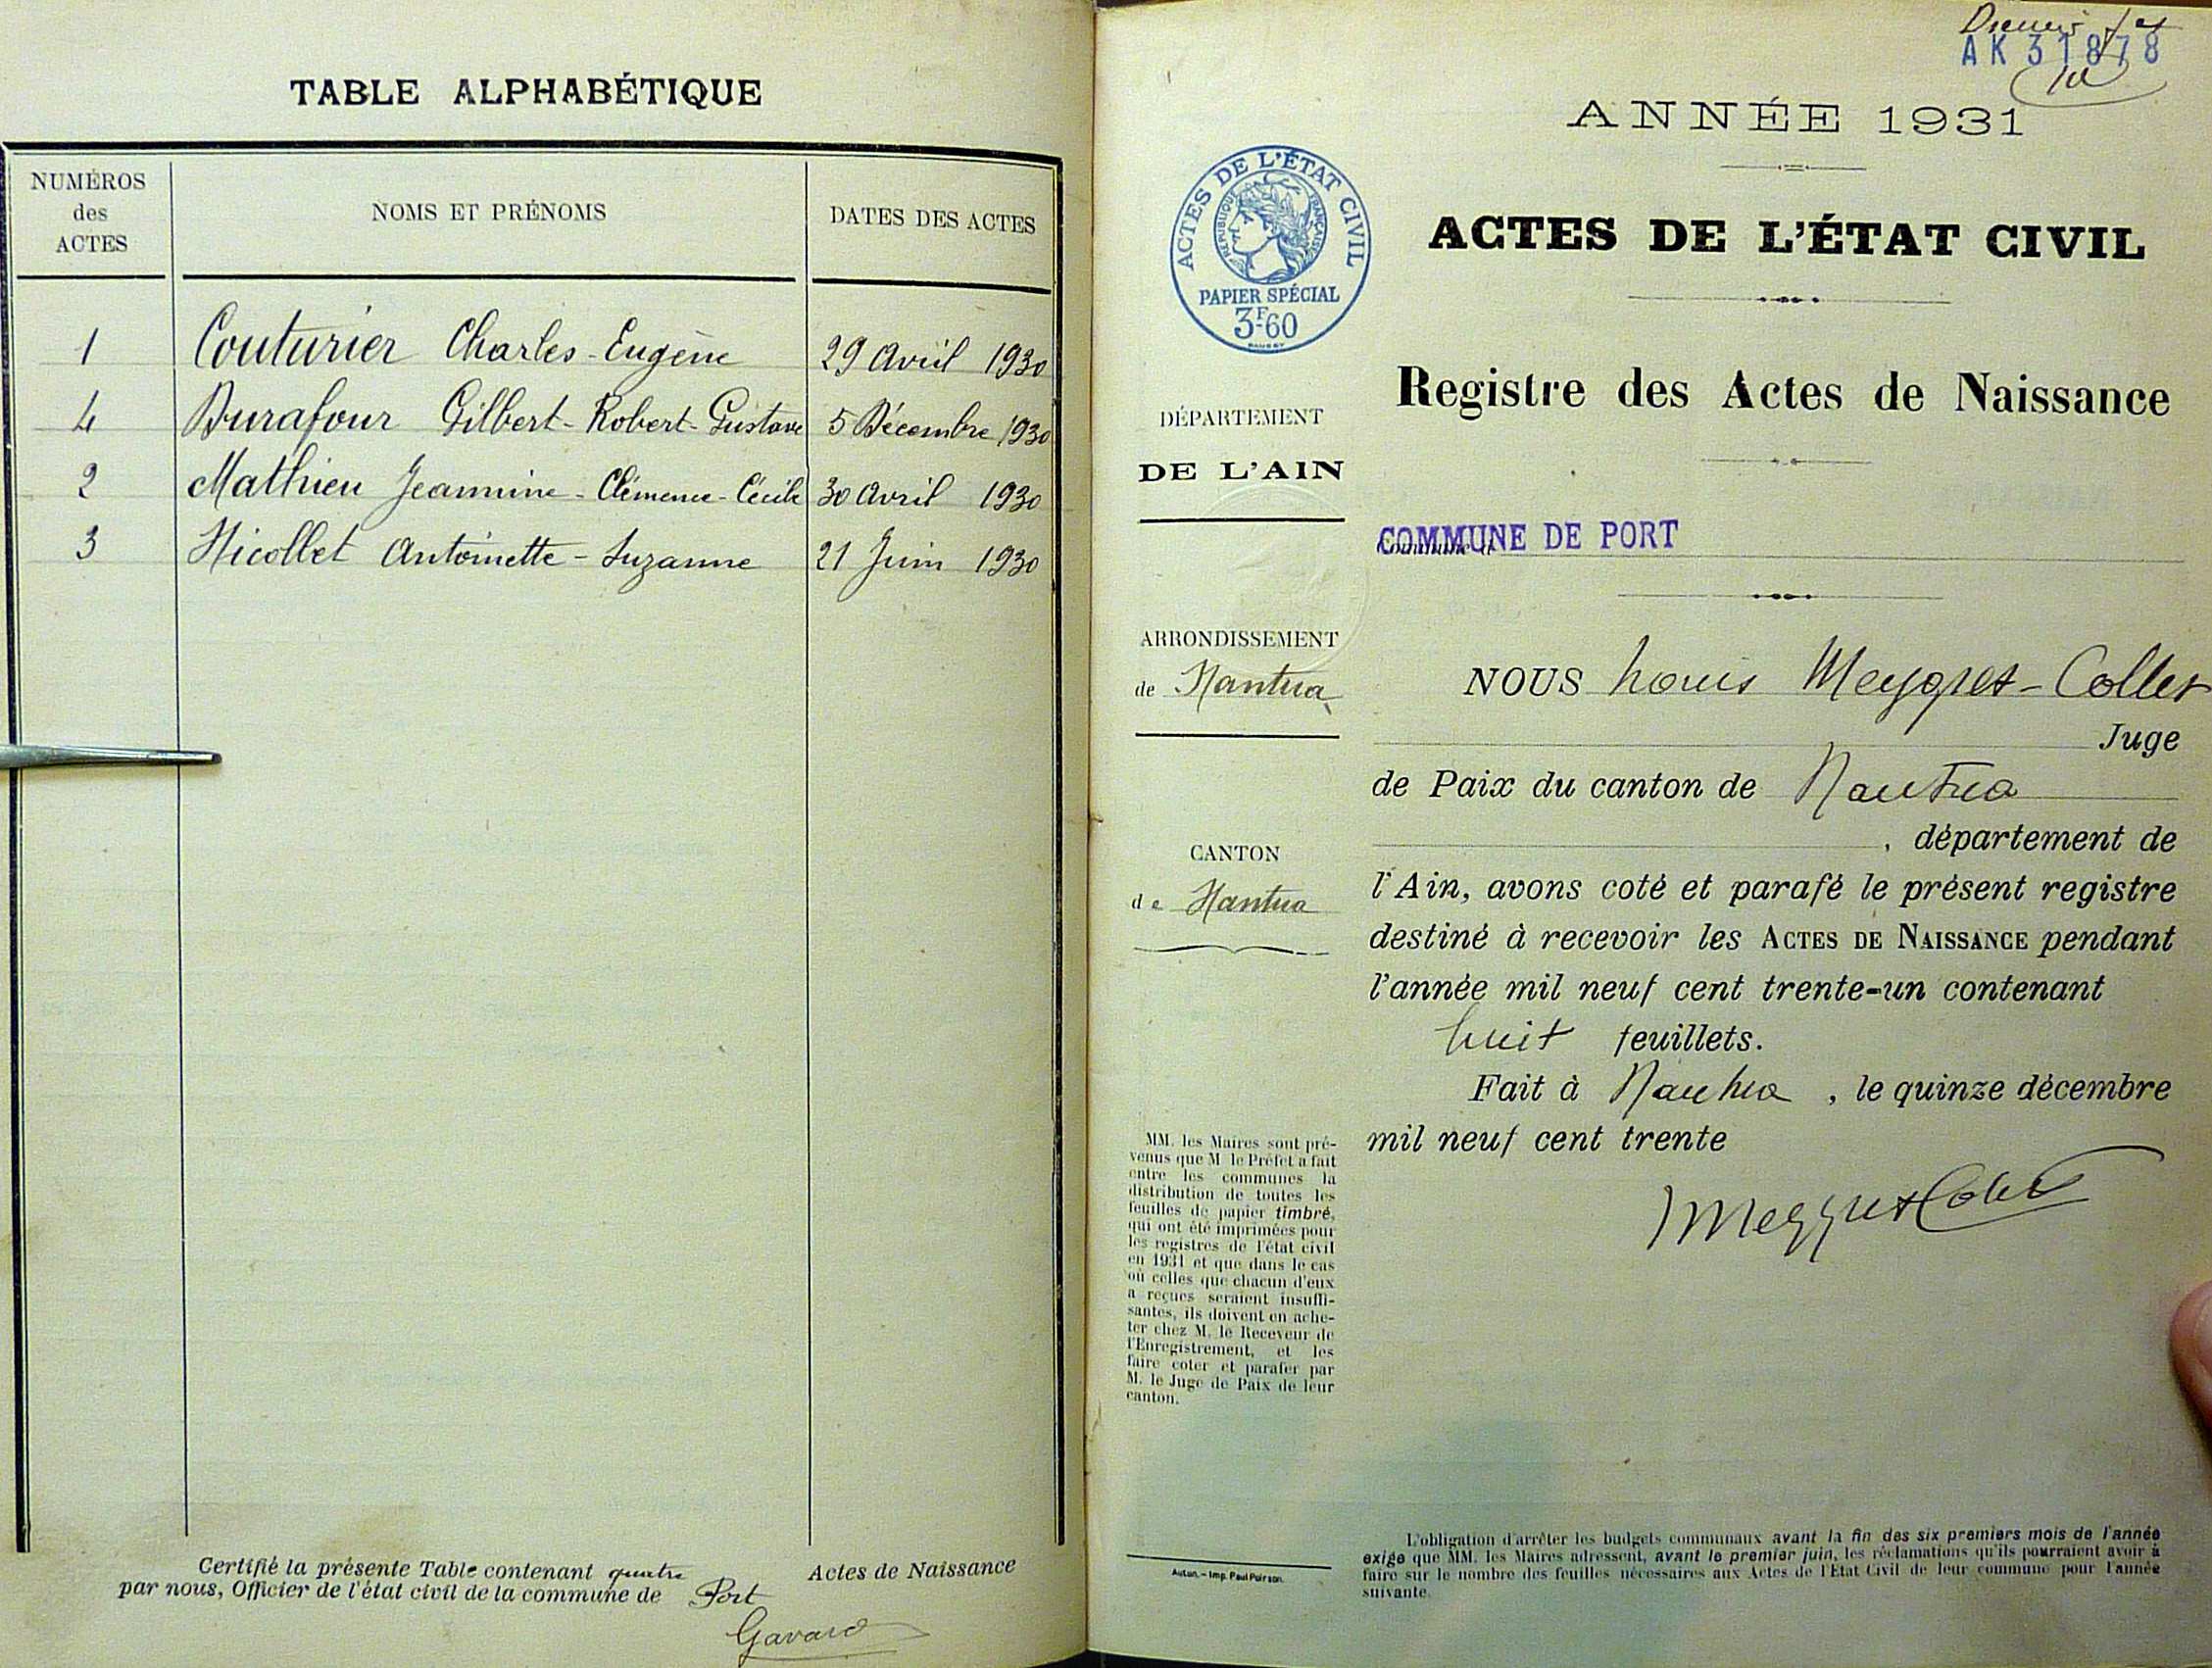 TABLE ALPHABÉTIQUE
NUMÉROS
des
ACTES
NOMS ET PRÉNOMS
DATES DES ACTES
1 Couturier Charles-Eugène 29 Avril 1930
4 Durafour Gilbert-Robert-Gustave 5 Décembre 1930
2 Mathieu Jeannine-Clémence-Cécile 30 Avril 1930
3 Nicollet Antoinette-Suzanne 21 Juin 1930
Certifié la présente Table contenant quatre Actes de Naissance
par nous, Officier de l'état civil de la commune de Port
Gavard
AK 31878
ANNÉE 1931
ACTES DE L'ÉTAT CIVIL
RÉPUBLIQUE FRANÇAISE
PAPIER SPÉCIAL
3F60
ACTES DE L'ÉTAT CIVIL
Registre des Actes de Naissance
DÉPARTEMENT
DE L'AIN
COMMUNE DE PORT
ARRONDISSEMENT
de Nantua
CANTON
de Nantua
NOUS Louis Meygret-Collet
Juge
de Paix du canton de Nantua
, département de
l'Ain, avons coté et parafé le présent registre
destiné à recevoir les ACTES DE NAISSANCE pendant
l'année mil neuf cent trente-un contenant
huit feuillets.
Fait à Nantua, le quinze décembre
mil neuf cent trente
MeygretCollet
MM. les Maires sont pré-
venus que M. le Préfet a fait
entre les communes la
distribution de toutes les
feuilles de papier timbré,
qui ont été imprimées pour
les registres de l'état civil
en 1931 et que dans le cas
où celles que chacun d'eux
a reçues seraient insuffi-
santes, ils doivent en ache-
ter chez M. le Receveur de
l'Enregistrement, et les
faire coter et parafer par
M. le Juge de Paix de leur
canton.
Autun. - Imp. Paul Poirson.
L'obligation d'arrêter les budgets communaux avant la fin des six premiers mois de l'année
exige que MM. les Maires adressent, avant le premier juin, les réclamations qu'ils pourraient avoir à
faire sur le nombre des feuilles nécessaires aux Actes de l'Etat Civil de leur commune pour l'année
suivante.